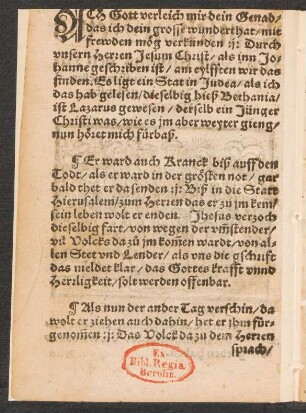 ACh Gott verleich mir dein Genad/
das ich dein grosse wunderthat/ mit
frewden mög verkünden :||: Durch
vnsern Herren Jesum Christ/ als inn Jo-
hanne geschriben ist/ am eylfften wir das
finden. Es ligt ein Statt in Judea/ als ich
das hab gelesen/ dieselbig hieß Bethania/
ist Lazarus gewesen/ derselb ein Jünger
Christi was/ wie es jm aber weyter gieng/
nun höret mich fürbaß.
¶ Er ward auch Kranck biß auff den
Todt/ als er ward in der grösten not/ gar
bald thet er da senden :||: Biß in die Statt
Hierusalem/ zum Herren das er zu jm kem/
sein leben wolt er enden. Jhesus verzoch
dieselbig fart/ von wegen der vmstender/
vil Volcks da zů jm kom̃en wardt/ von al-
len Stet vnd Lender/ als vns die gschrift
das meldet klar/ das Gottes krafft vnnd
Herrligkeit/ solt werden offenbar.
¶ Als nun der ander Tag verschin/ da
wolt er ziehen auch dahin/ het er jhm für-
genom̃en :||: Das Volck da zu dem Herren
sprach/
Ex
Bibl. Regia
Berolin.